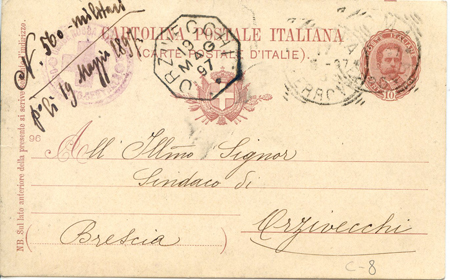 CARTOLINA POSTALE ITALIANA
(CARTE POSTALE D'ITALIE)
N. 560 - militari
19 Maggio 1897
ORZIVECCHI
19
MAG
97
POSTE ITALIANE
10
96
All' Illmo Signor
Sindaco di
Orzivecchi
(Brescia)
NB. Sul lato anteriore della presente si scrive soltanto l'indirizzo.
C-8